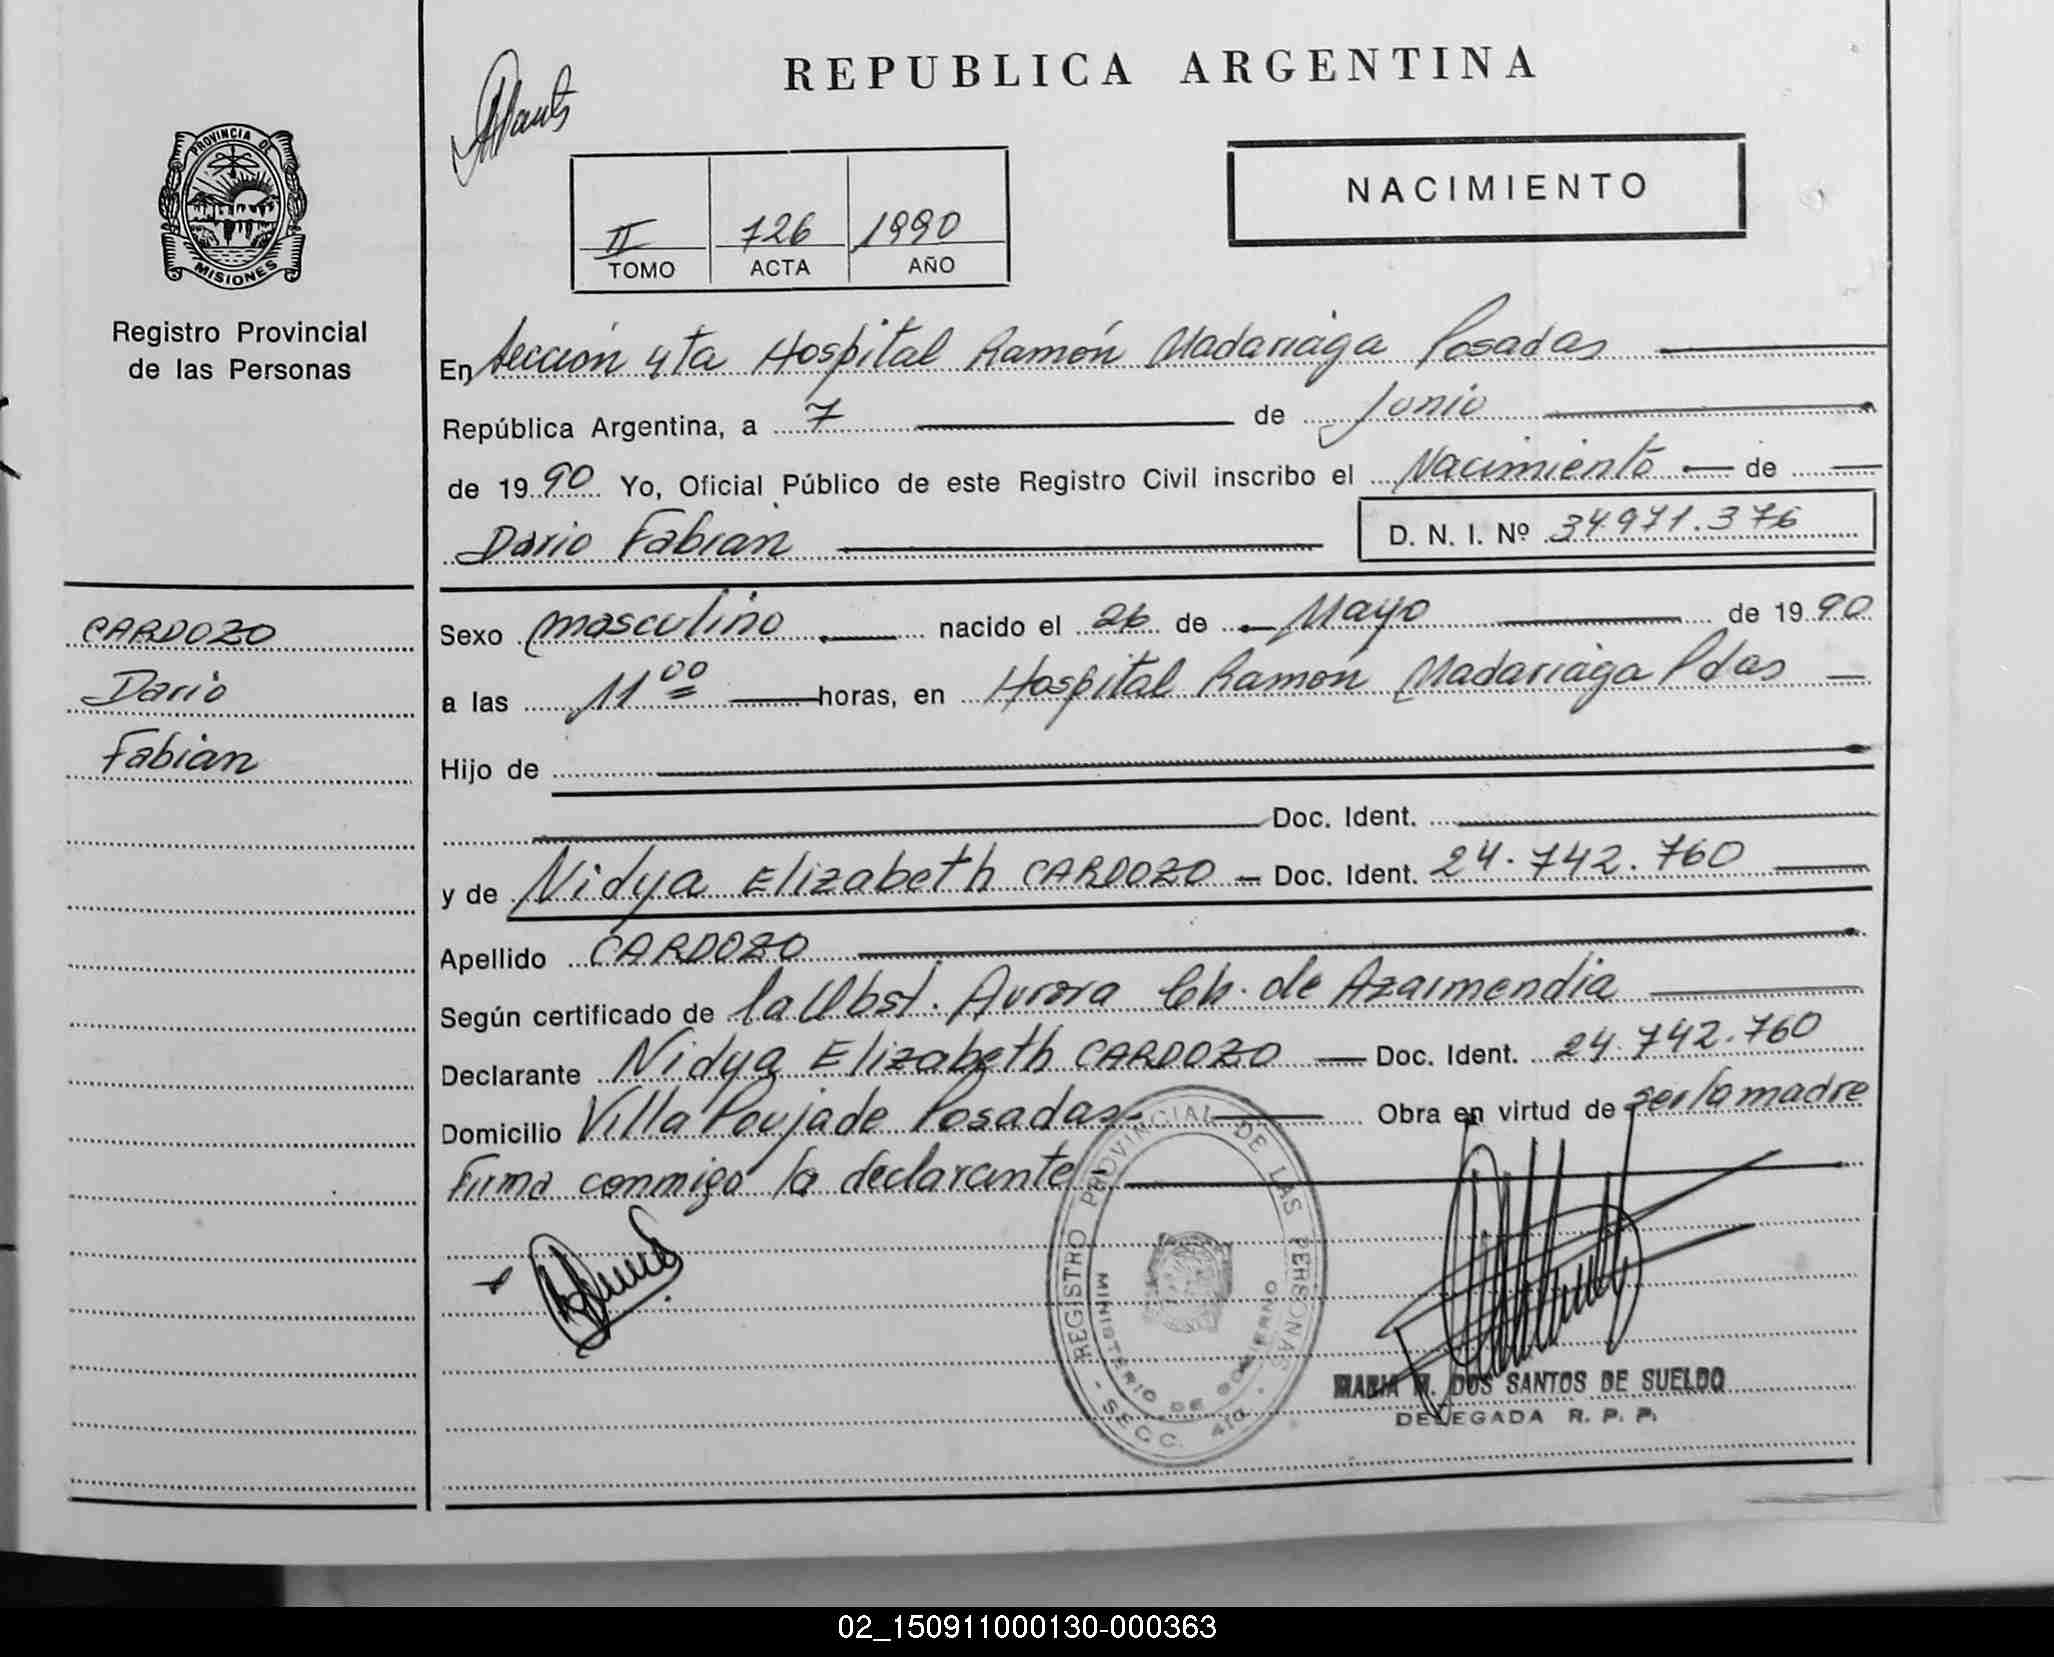 REPUBLICA ARGENTINA
PROVINCIA DE MISIONES
Registro Provincial
de las Personas
NACIMIENTO
II 726 1990
TOMO ACTA AÑO
En Sección 4ta Hospital Ramón Madariaga Posadas
República Argentina, a 7 de Junio
de 1990 Yo, Oficial Público de este Registro Civil inscribo el Nacimiento de
Dario Fabian D. N. I. Nº 34.971.376
CARDOZO
Dario
Fabian
Sexo masculino nacido el 26 de Mayo de 1990
a las 11 00 horas, en Hospital Ramón Madariaga Pdas
Hijo de
Doc. Ident.
y de Nidya Elizabeth CARDOZO Doc. Ident. 24.742.760
Apellido CARDOZO
Según certificado de la Obst. Aurora Ch. de Azarmendia
Declarante Nidya Elizabeth CARDOZO Doc. Ident. 24.742.760
Domicilio Villa Poujade Posadas Obra en virtud de ser la madre
Firma conmigo la declarante
REGISTRO PROVINCIAL DE LAS PERSONAS
MINISTERIO DE GOBIERNO
SECC. 4ta.
MARIA M. DOS SANTOS DE SUELDO
DELEGADA R. P. P.
02_150911000130-000363